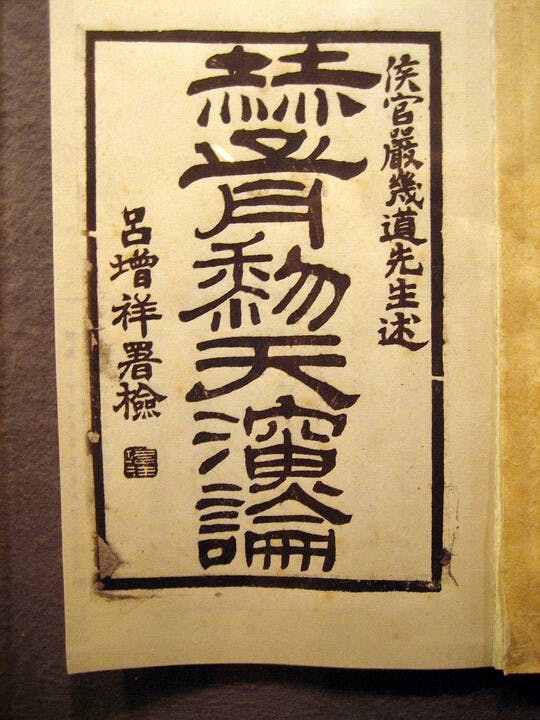 侯官嚴幾道先生述
赫胥黎天演論
呂增祥署檢